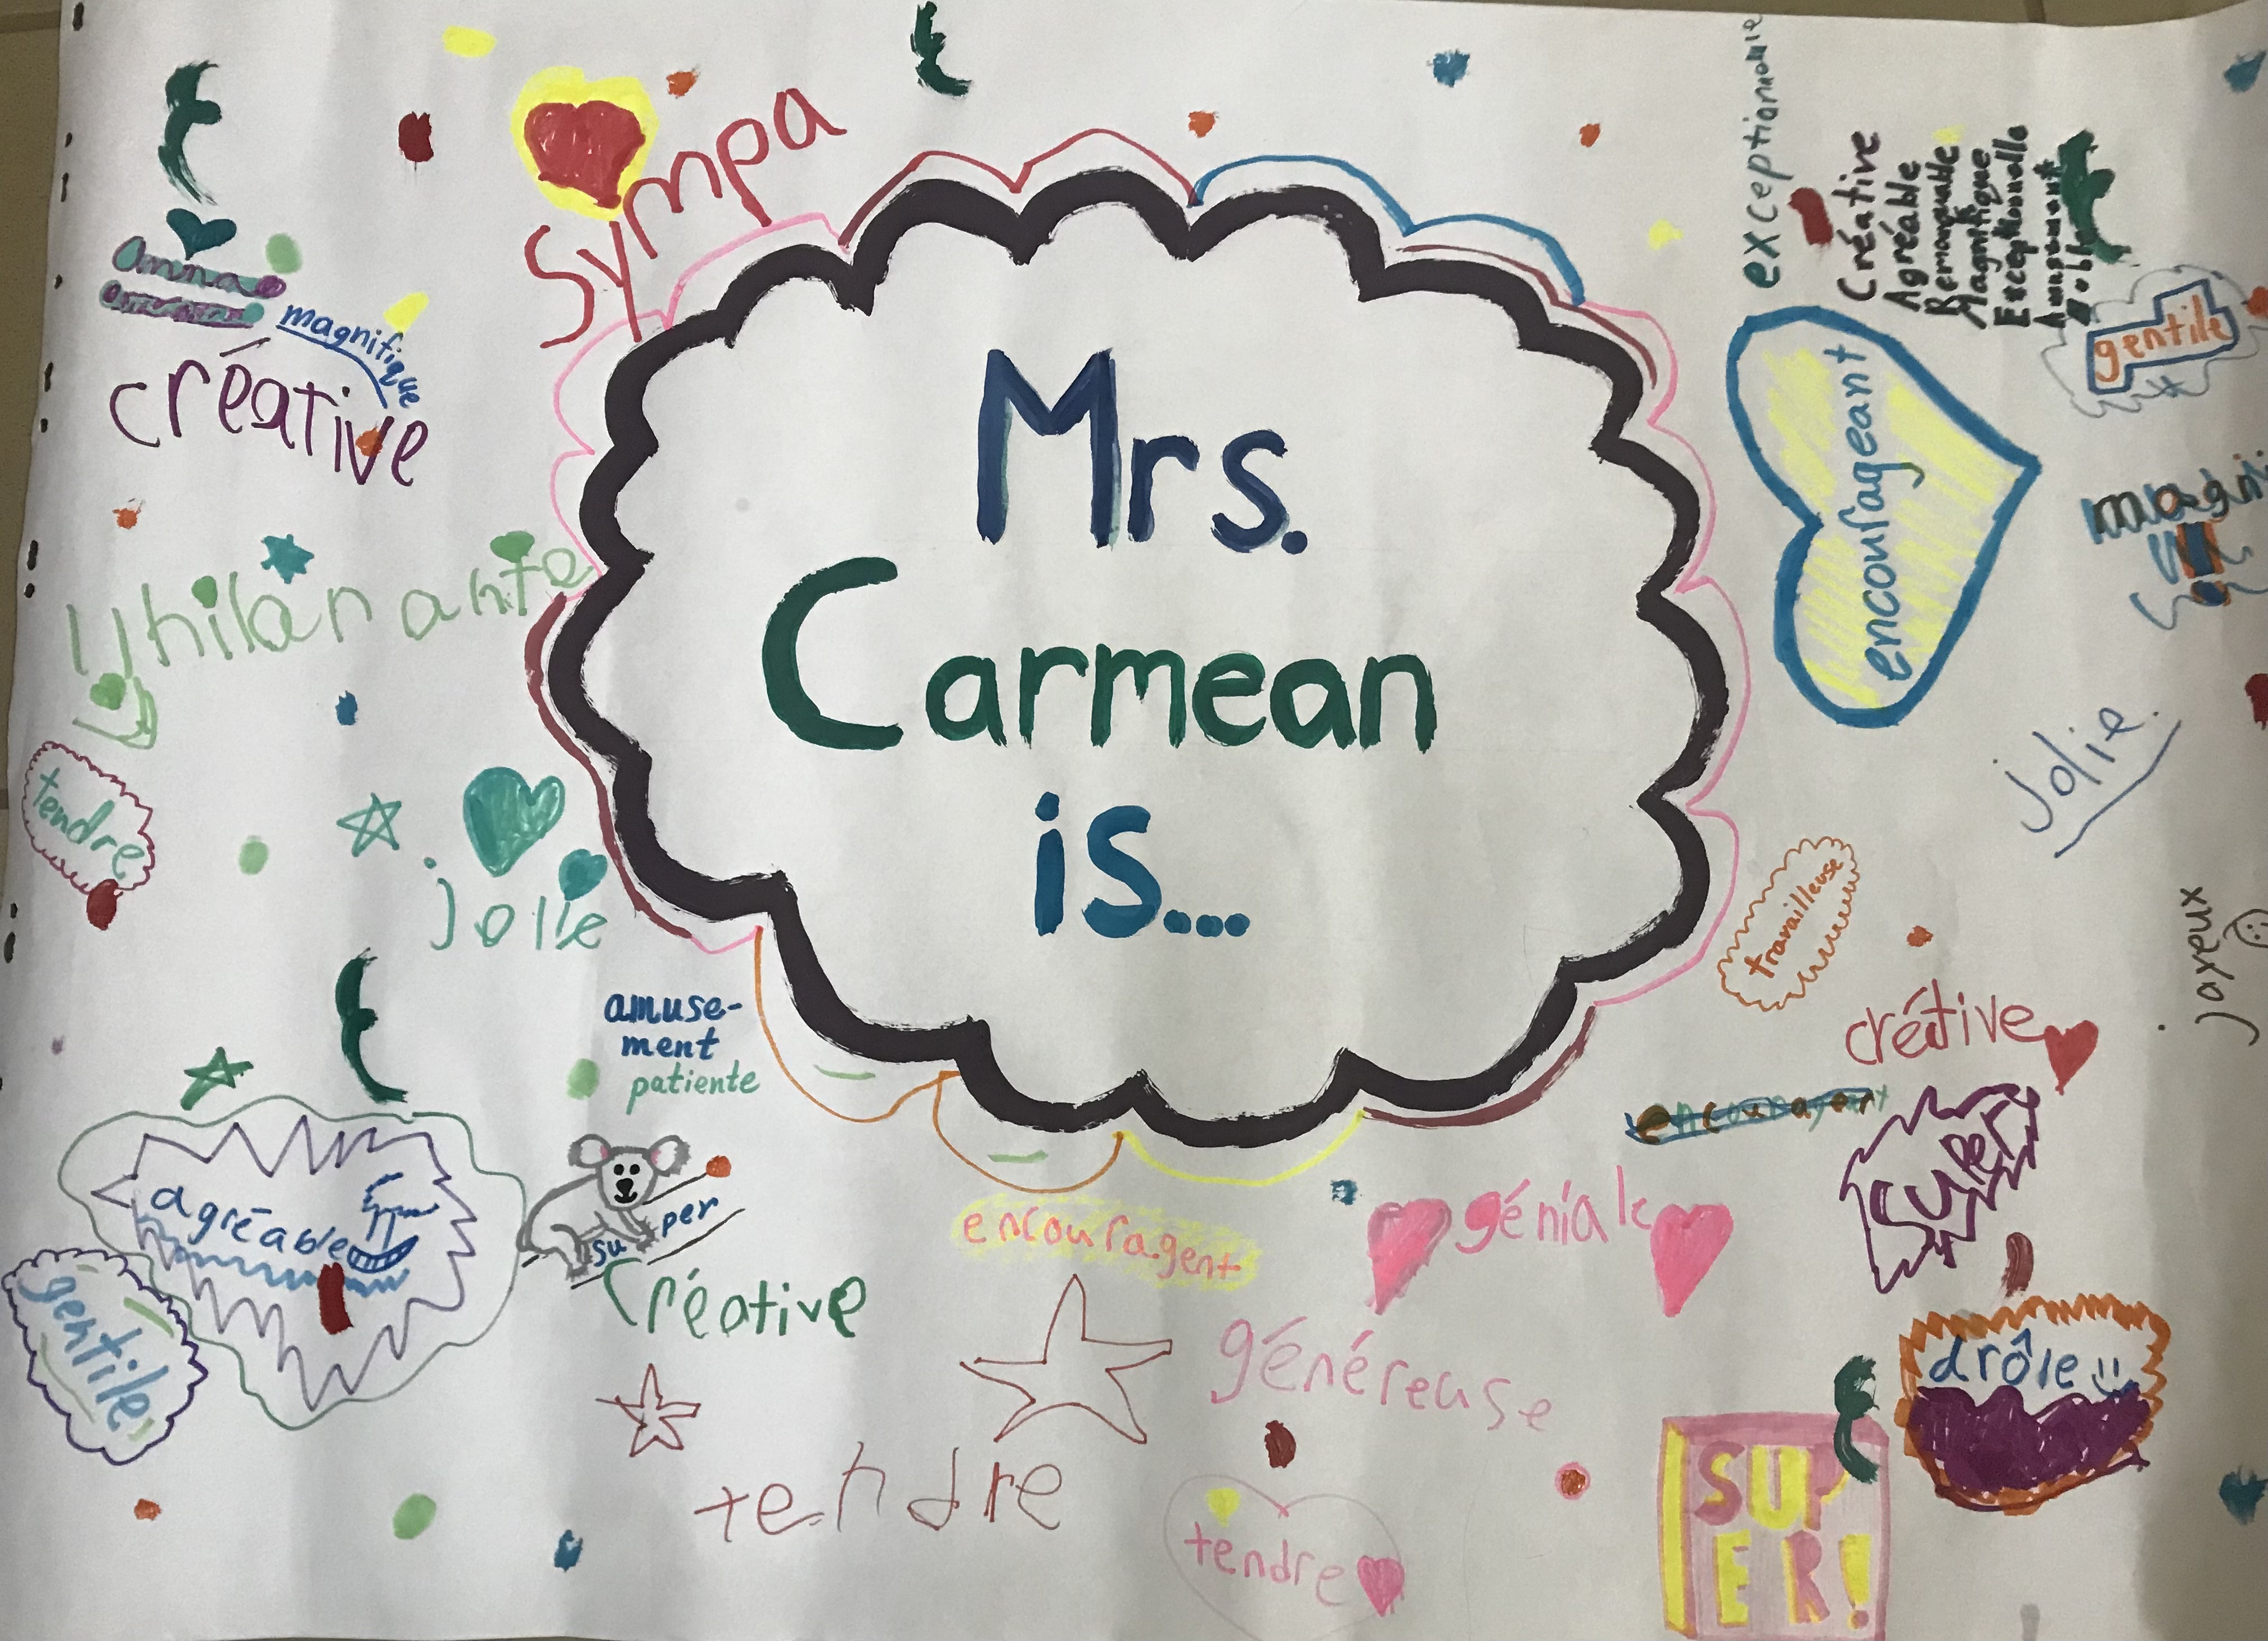 Mrs.
Carmean
is...
sympa
magnifique
créative
hilarante
tendre
jolie
amuse-
ment
patiente
agréable
gentile
su per
créative
tendre
encouragent
géniale
généreuse
tendre
exceptionnelle
Créative
Agréable
Remarquable
Magnifique
Exceptionnelle
Amusement
Noble
gentile
encourageant
magni
jolie
travailleuse
joyeux
créative
super
drôle
SUP
ER!